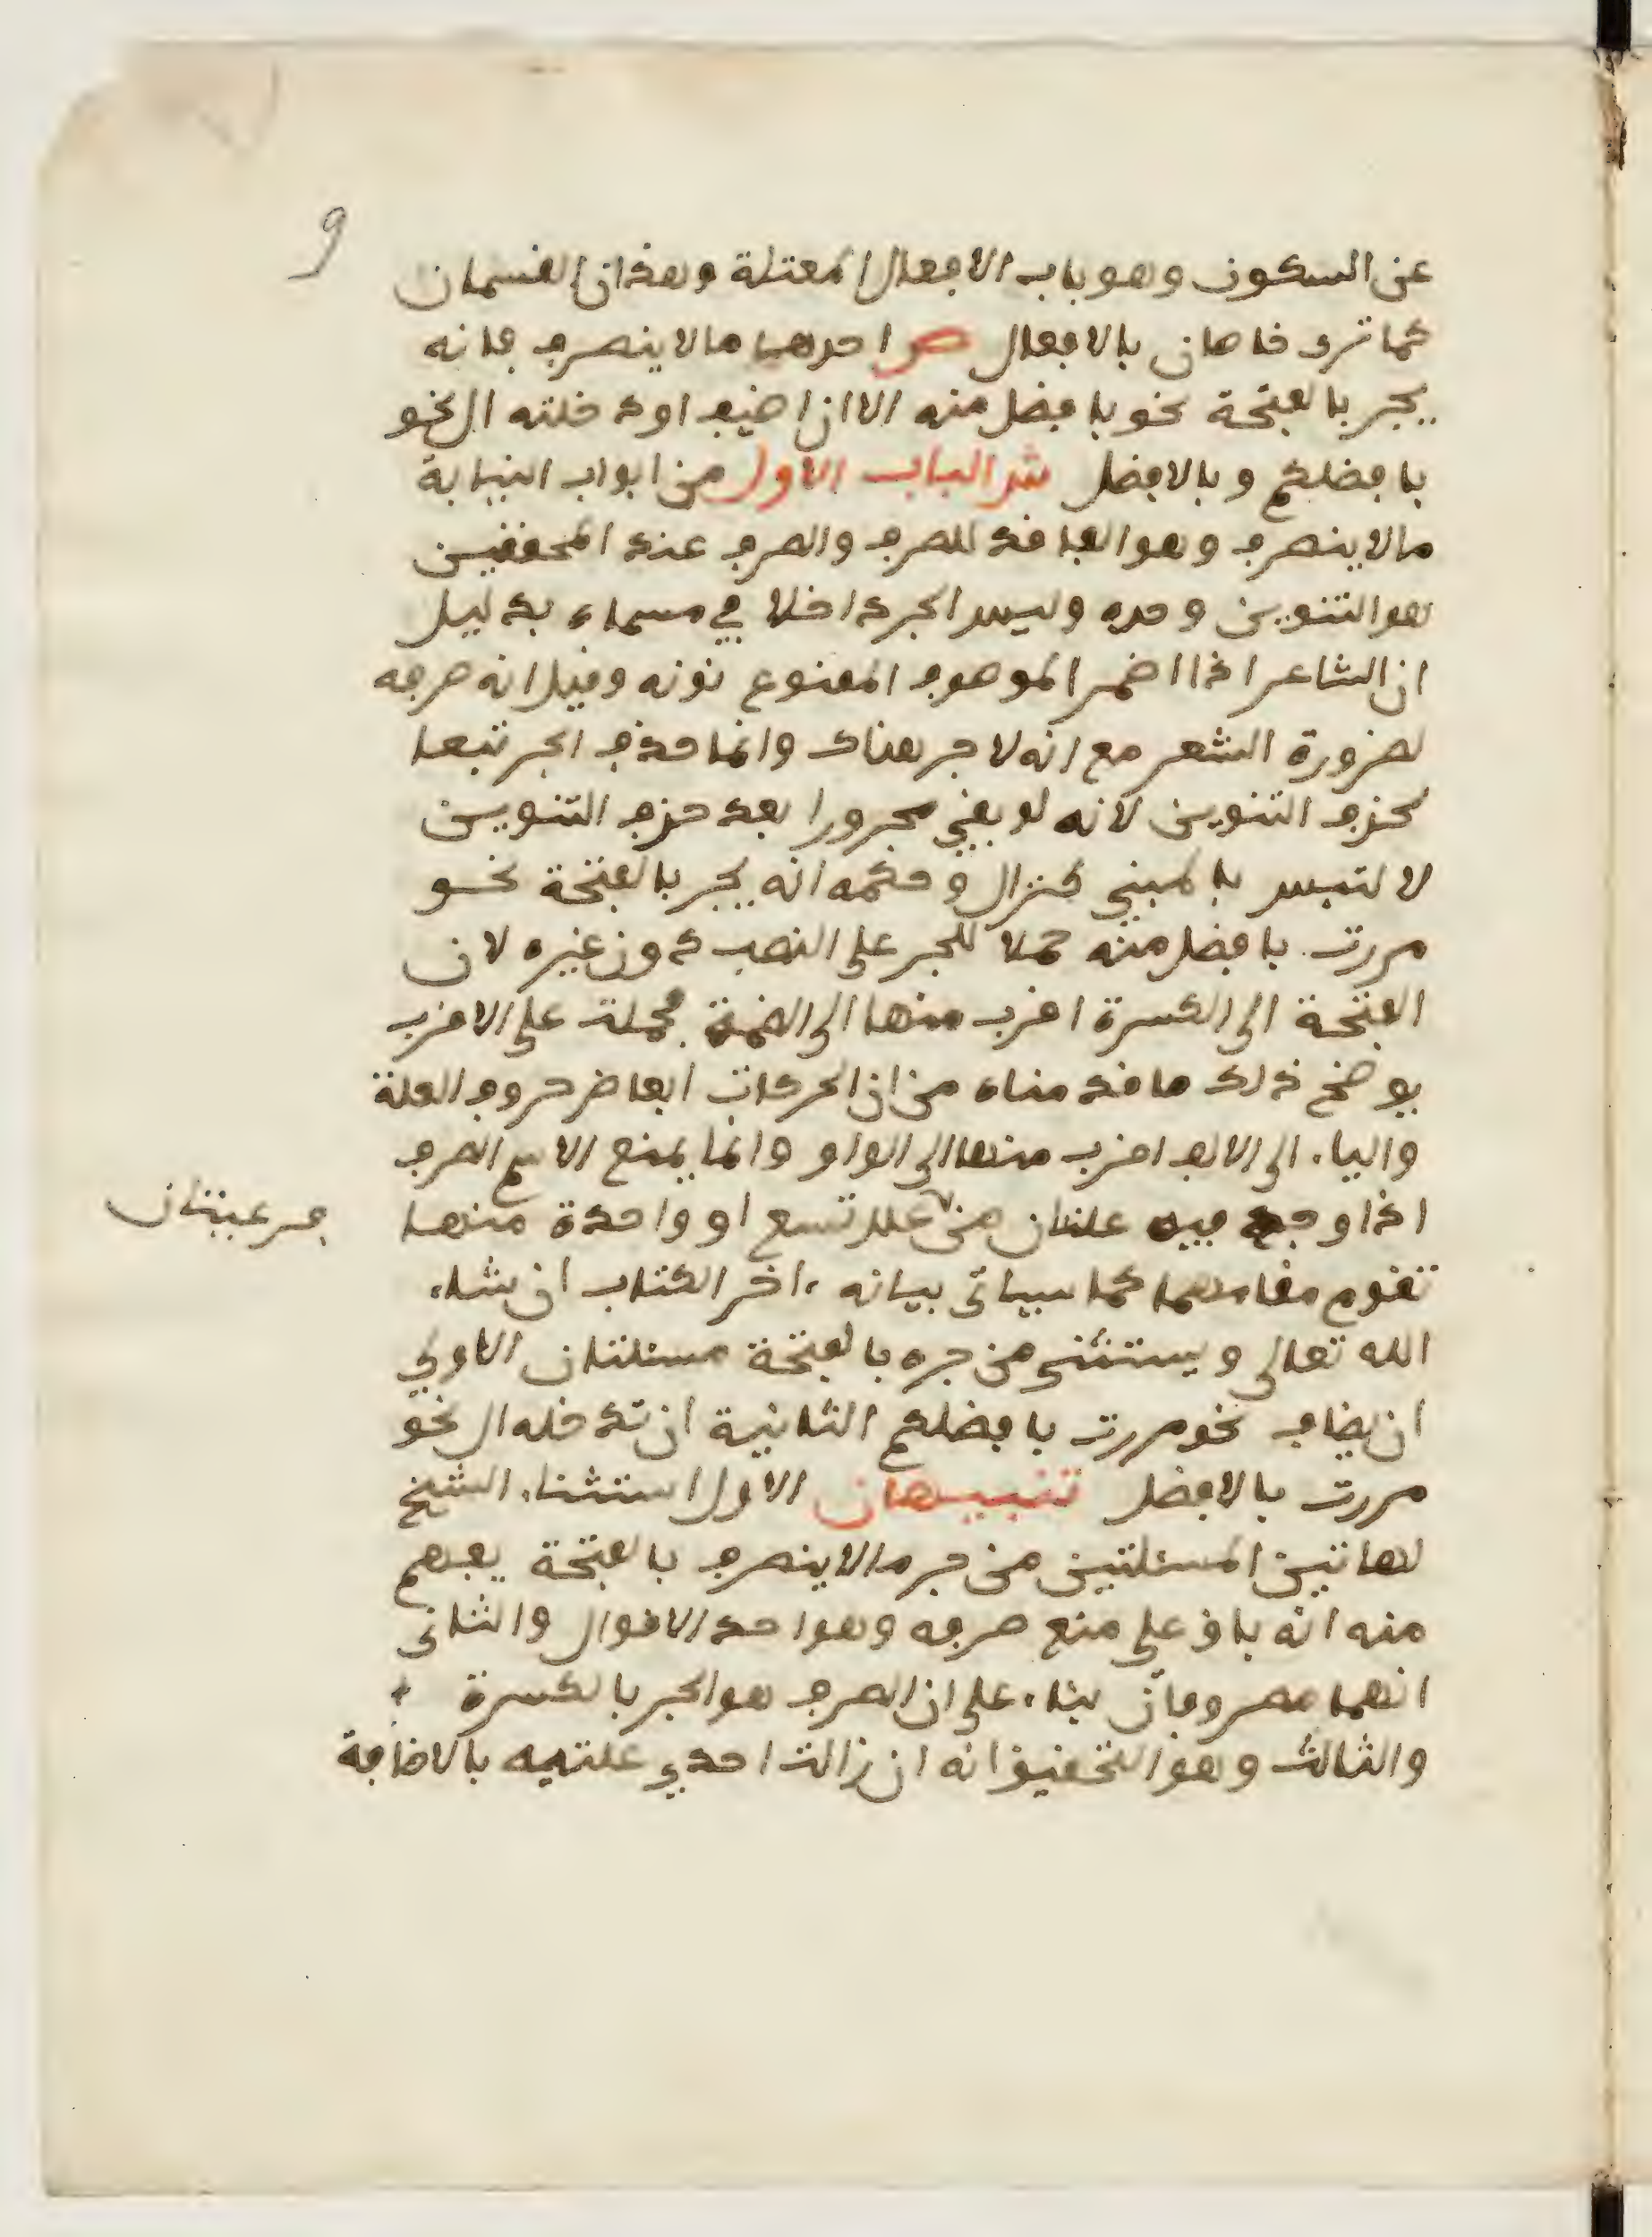 9
عن السكون وهو باب الافعال المعتلة وهذان القسمان
كما ترى خاصان بالافعال ص احدها ما لا ينصرف فانه
يجر بالفتحة نحو بافضل منه الا ان اضيف او دخلته ال نحو
بافضلكم وبالافضل ش الباب الاول من ابواب النيابة
ما لا ينصرف وهو الفاقد للصرف والصرف عند المحققين
هو التنوين وحده وليس الجر داخلا في مسماه بدليل
ان الشاعر اذا اضمر الموصوف الممنوع نونه وقيل انه صرفه
لضرورة الشعر مع انه لا جر هناك وانما حذف الجر تبعا
لحذف التنوين لانه لو بقي مجرورا بعد حذف التنوين
لالتبس بالمبني كنزال وحكمه انه يجر بالفتحة نحو
مررت بافضل منه حملا للجر على النصب دون غيره لان
الفتحة الى الكسرة اقرب منها الى الضمة فحملت على الاقرب
يوضح ذلك ما قدمناه من ان الحركات ابعاض حروف العلة
والياء الى الالف اقرب منها الى الواو وانما يمنع الاسم الصرف
اذا وجد فيه علتان من علل تسع او واحدة منها
فرعيتان
تقوم مقامهما كما سياتي بيانه ءاخر الكتاب ان شاء
الله تعالى ويستثنى من جره بالفتحة مسئلتان الاولى
ان يضاف نحو مررت بافضلكم الثانية ان تدخله ال نحو
مررت بالافضل تنبيهان الاول استثناء الشيخ
لهاتين المسئلتين من جر ما لا ينصرف بالفتحة يفهم
منه انه باق على منع صرفه وهو احد الاقوال والثاني
انهما مصروفان بناء على ان الصرف هو الجر بالكسرة
والثالث وهو التحقيق انه ان زالت احدى علتيه بالاضافة